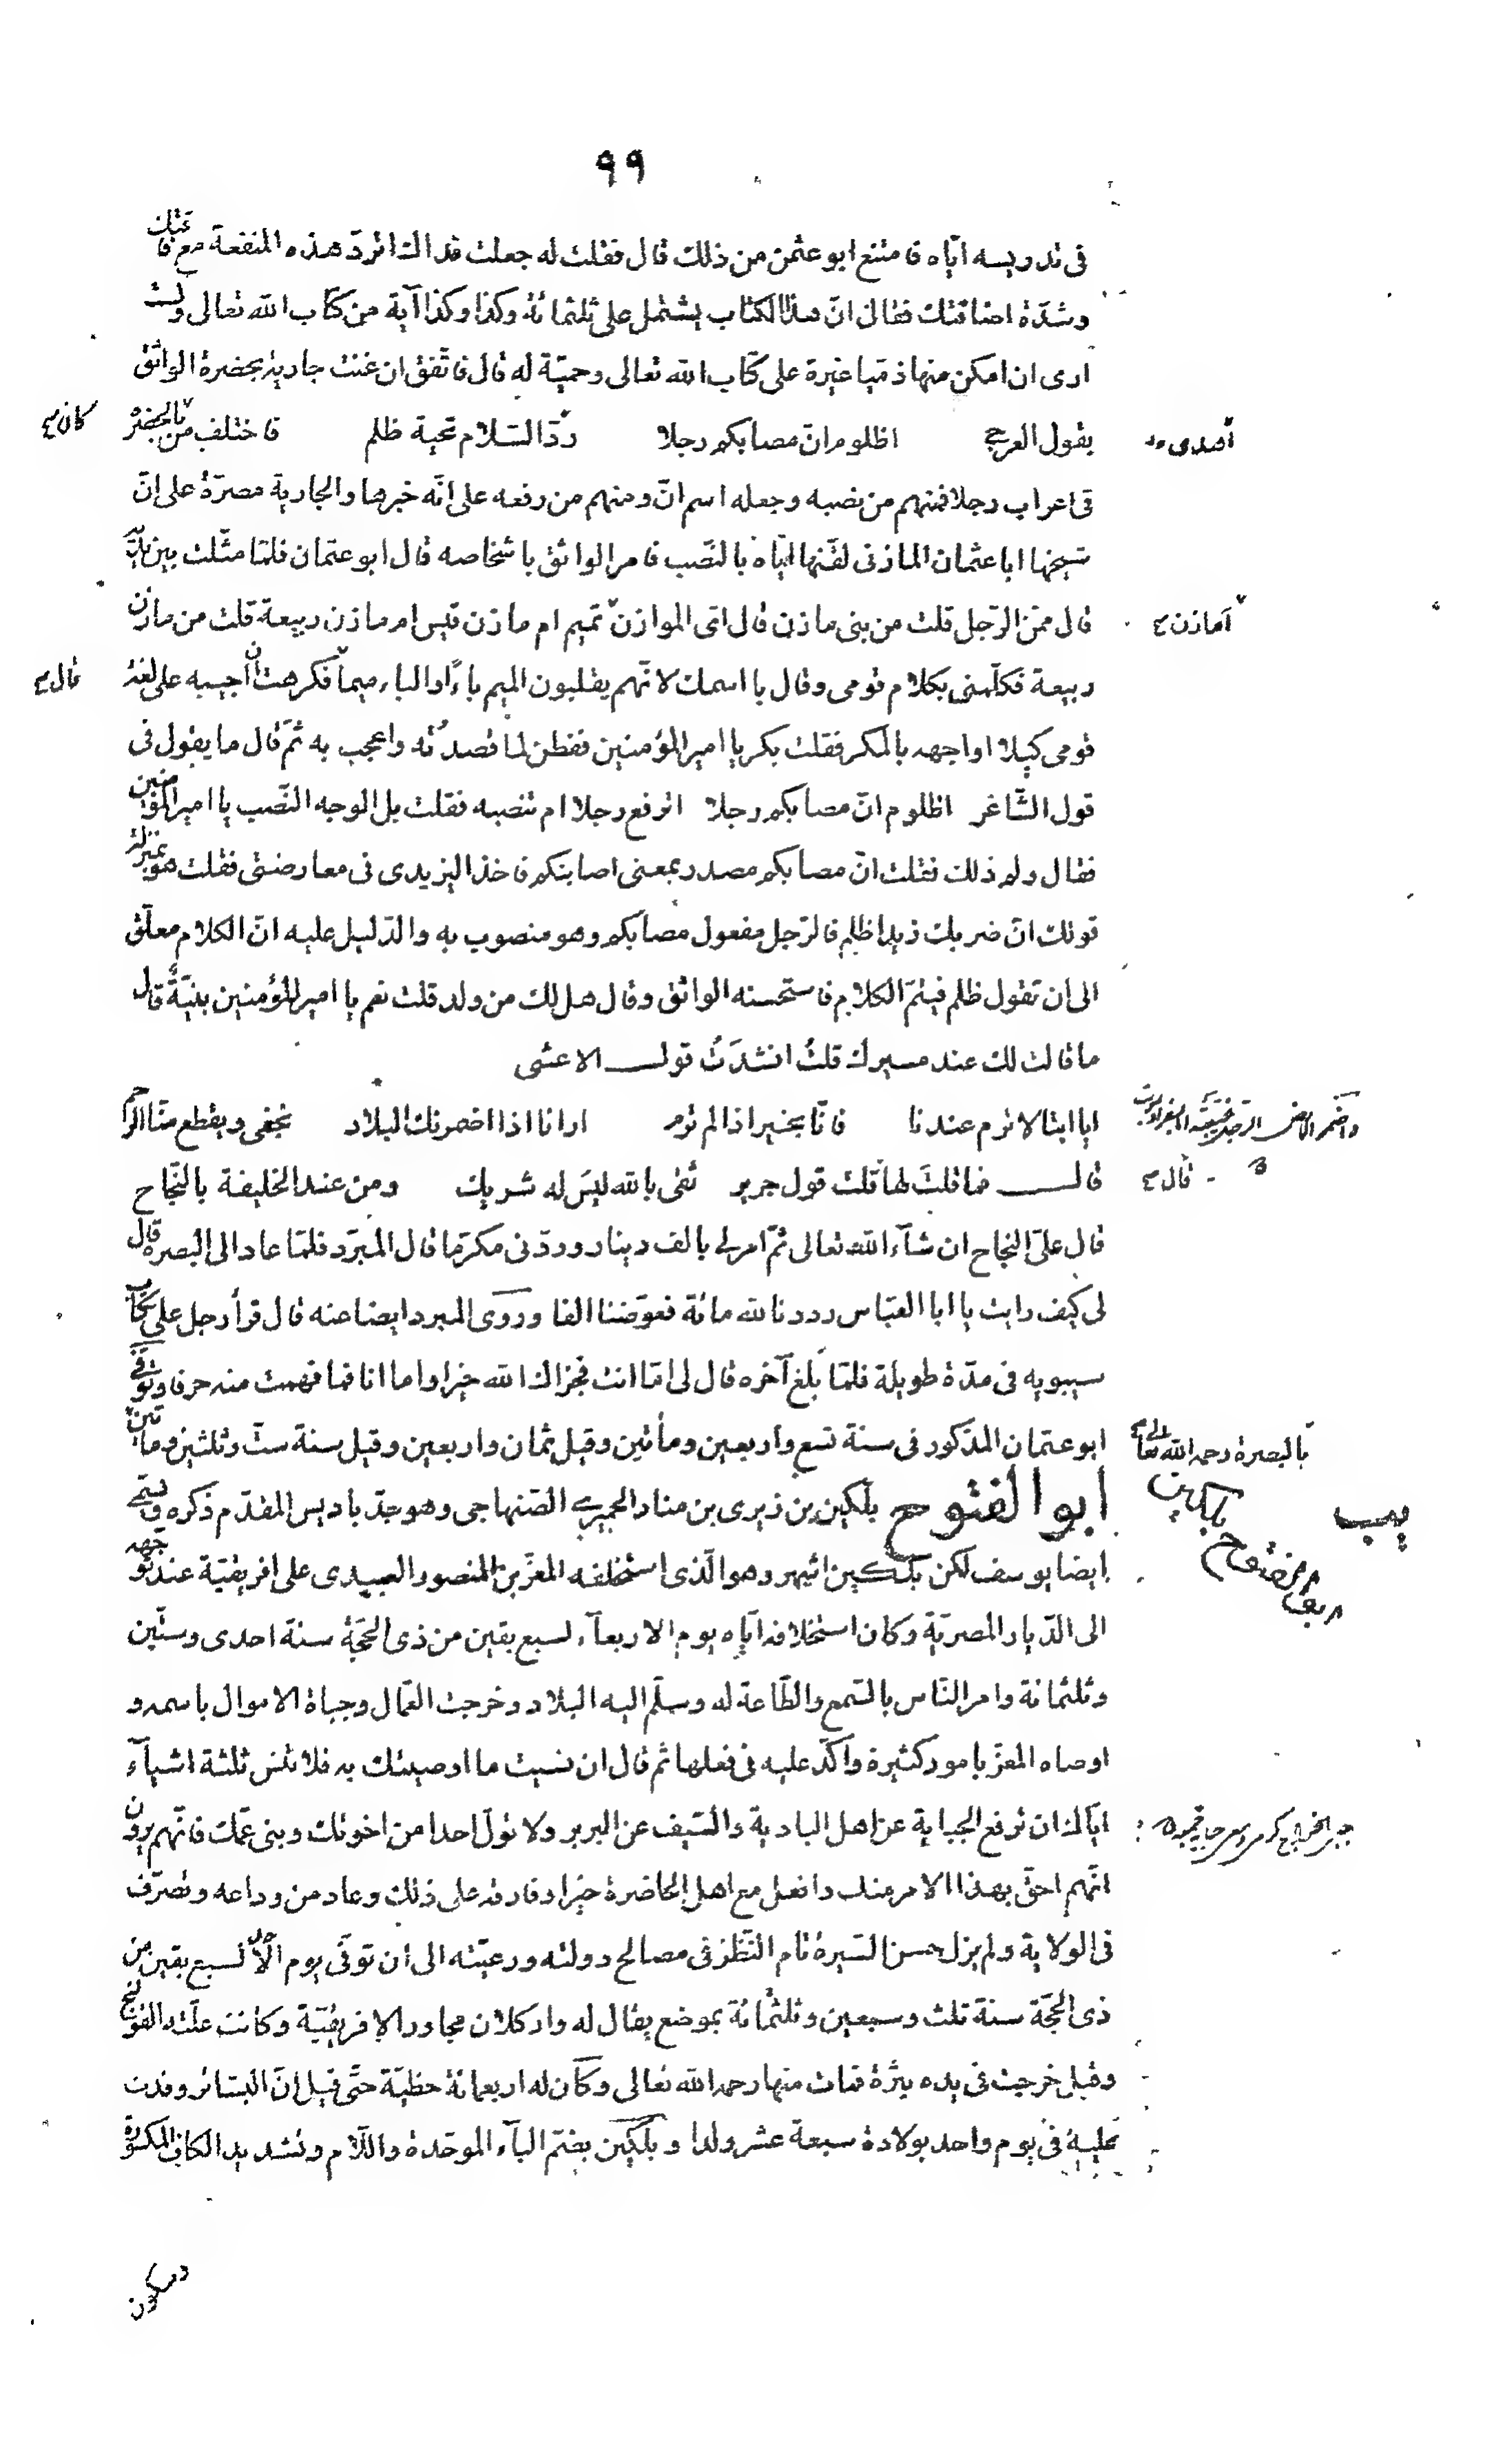 ٩٩
فى تدريسه اياه فامتنع ابو عثمن من ذلك قال فقلت له جعلت فداك اترد هذه المنفعة مع فاقتك
وشدّة اضاقتك فقال انّ هذا الكتاب يشتمل على ثلثمائة وكذا وكذا آية من كتاب الله تعالى ولست
ارى ان امكن منها ذميا غيرة على كتاب الله تعالى وحميّة له قال فاتّفق ان غنت جارية بحضرة الواثق
بقول العرجى اظلوم انّ مصابكم رجلا ردّ السّلام تحية ظلم فاختلف من بالحضرة
كان
اهدى
فى اعراب رجلا فمنهم من نصبه وجعله اسم انّ ومنهم من رفعه على انّه خبرها والجارية مصرّة على انّ
شيخها ابا عثمان المازنى لقّنها ايّاه بالنّصب فامر الواثق باشخاصه قال ابو عثمان فلمّا مثّلت بين يديه
قال ممّن الرّجل قلت من بنى مازن قال اىّ الموازن تميم ام مازن قيس ام مازن ربيعة قلت من مازن
أمازن
ربيعة فكلّمنى بكلام قومى وقال با اسمك لانّهم يقلبون الميم باءً والباء ميماً فكرهت ان اجيبه على لغة
قال
قومى كيلا اواجهه بالمكر فقلت بكر يا امير المؤمنين ففطن لما قصدتُه واعجب به ثمّ قال ما يقول فى
قول الشّاعر اظلوم انّ مصابكم رجلا اترفع رجلا ام تنصبه فقلت بل الوجه النّصب يا امير المؤمنين
فقال ولم ذلك فقلت انّ مصابكم مصدر بمعنى اصابتكم فاخذ اليزيدى فى معارضتى فقلت هو بمنزلة
قولك انّ ضربك زيدا ظلم فالرّجل مفعول مصابكم وهو منصوب به والدّليل عليه انّ الكلام معلّق
الى ان تقول ظلم فيتمّ الكلام فاستحسنه الواثق وقال هل لك من ولد قلت نعم يا امير المؤمنين بنيّةٌ قال
ما قالت لك عند مسيرك قلتُ انشدَتْ قول الاعشى
ايا ابتا لا ترم عندنا فانّا بخير اذا لم ترم ارانا اذا اضمرتك البلاد نجفى ويقطع منّا الرّحم
قال فما قلتَ لها قلت قول جرير ثقى بالله ليسَ له شريك ومن عند الخليفة بالنّجاح
قال
قال على النجاح ان شآء الله تعالى ثمّ امر لى بالف دينار وردّنى مكرّما قال المبرّد فلمّا عاد الى البصرة قال
لى كيف رايت يا ابا العبّاس رددنا لله مائة فعوّضنا الفا وروى المبرد ايضا عنه قال قرأ رجل علىّ كتاب
سيبويه فى مدّة طويلة فلمّا بلغ آخره قال لى امّا انت فجزاك الله خيرا واما انا فما فهمت منه حرفا وتوفّى
ابو عثمان المذكور فى سنة تسع واربعين ومأتين وقيل ثمان واربعين وقيل سنة ستّ وثلثين ومأتين
بالبصرة رحمه الله تعالى
أبو الفتوح بلكين بن زيرى بن مناد الحميرى الصّنهاجى وهو جدّ باديس المقدّم ذكره ويسمّى
ايضا يوسف لكن بلكين اشهر وهو الّذى استخلفه المعزّ بن المنصور العبيدى على افريقيّة عند توجّهه
الى الدّيار المصريّة وكان استخلافه ايّاه يوم الاربعآء لسبع بقين من ذى الحجّة سنة احدى وستّين
وثلثمائة وامر النّاس بالسّمع والطّاعة له وسلّم اليه البلاد وخرجت العمّال وجباة الاموال باسمه و
اوصاه المعزّ بامور كثيرة واكّد عليه فى فعلها ثم قال ان نسيت ما اوصيتك به فلا تنس ثلثة اشيآء
ايّاك ان ترفع الجباية عن اهل البادية والسّيف عن البربر ولا تولّ احدا من اخوتك وبنى عمّك فانّهم يرون
انّهم احقّ بهذا الامر منك وافعل مع اهل الحاضرة خيرا وفارقه على ذلك وعاد من وداعه وتصرّف
فى الولاية ولم يزل حسن السّيرة تام النّظر فى مصالح دولته ورعيّته الى ان توفّى يوم الاحد لسبع بقين من
ذى الحجّة سنة ثلث وسبعين وثلثمائة بموضع يقال له واركلان مجاور الافريقيّة وكانت علّته القولنج
وقيل خرجت فى يده بثرة فمات منها رحمه الله تعالى وكان له اربعمائة حظيّة حتّى قيل انّ البشائر وفدت
عليه فى يوم واحد بولادة سبعة عشر ولدا وبلكّين بضمّ البآء الموحّدة واللّام وتشديد الكاف المكسورة